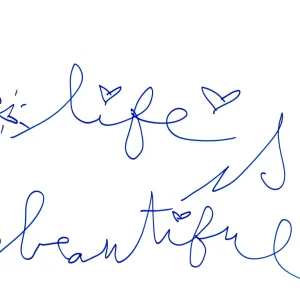 life
is
beautiful